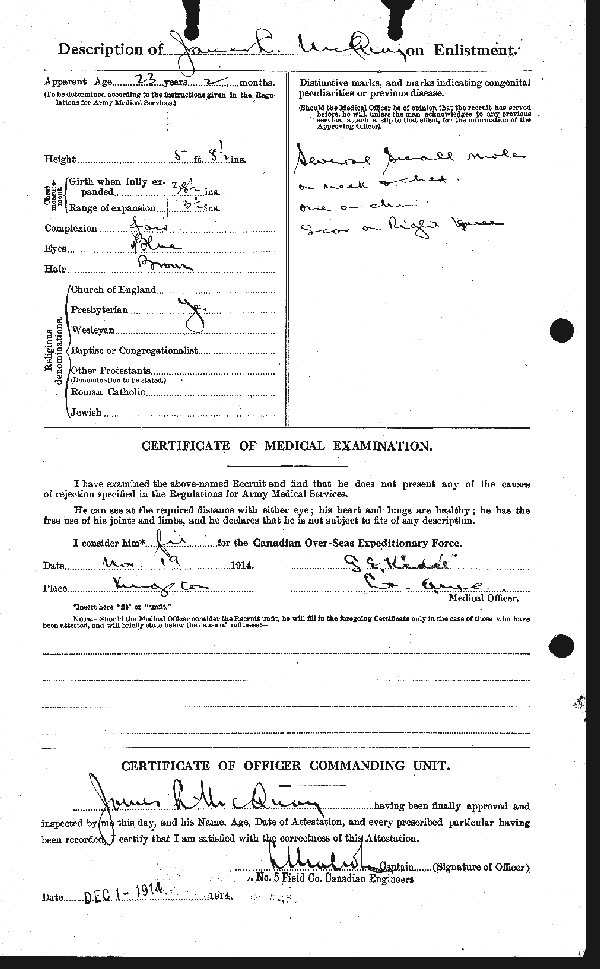 Description of James L. McQuay on Enlistment.
Apparent Age 23 years 2 months.
(To be determined according to the instructions given in the Regu-
lations for Army Medical Services.)
Height 5 ft. 8½ ins.
Chest measure-
ment
Girth when fully ex-
panded 38½ ins.
Range of expansion 3½ ins.
Complexion Fair
Eyes Blue
Hair Brown
Religious
denominations.
Church of England
Presbyterian y.
Wesleyan
Baptist or Congregationalist
Other Protestants
(Denomination to be stated.)
Roman Catholic
Jewish
Distinctive marks, and marks indicating congenital
peculiarities or previous disease.
(Should the Medical Officer be of opinion that the recruit has served
before, he will, unless the man acknowledges to any previous
service, attach a slip to that effect, for the information of the
Approving Officer).
Several small mole
on neck & chest.
one on chin.
Scar on Right knee
CERTIFICATE OF MEDICAL EXAMINATION.
I have examined the above-named Recruit and find that he does not present any of the causes
of rejection specified in the Regulations for Army Medical Services.
He can see at the required distance with either eye; his heart and lungs are healthy; he has the
free use of his joints and limbs, and he declares that he is not subject to fits of any description.
I consider him* fit for the Canadian Over-Seas Expeditionary Force.
Date Nov 19 1914.
Place Kingston
Medical Officer.
*Insert here "fit" or "unfit."
NOTE.—Should the Medical Officer consider the Recruit unfit, he will fill in the foregoing Certificate only in the case of those who have
been attested, and will briefly state below the cause of unfitness:—
CERTIFICATE OF OFFICER COMMANDING UNIT.
James L McQuay having been finally approved and
inspected by me this day, and his Name, Age, Date of Attestation, and every prescribed particular having
been recorded, I certify that I am satisfied with the correctness of this Attestation.
Captain (Signature of Officer)
No. 5 Field Co. Canadian Engineers
Date DEC 1 - 1914 1914.